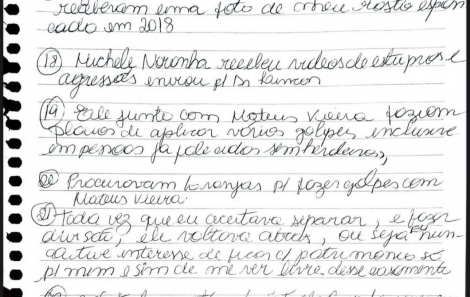 receberam uma foto de meu rosto espan
cado em 2018
(18) Michele Noronha recebeu videos de estupros e
agressões enviou p/ Dr Ramon
(19) Ele junto com Mateus Vieira faziam
planos de aplicar vários golpes, inclusive
em pessoas já falecidas sem herdeiros,
(20) Procuravam laranjas p/ fazer golpes com
Mateus Vieira.
(21) Toda vez que eu aceitava separar, e fazer
, ele voltava atrás, ou seja eu nun
ca tive interesse de ficar c/ patrimonio só
p/ mim e sim de me ver livre desse casamento